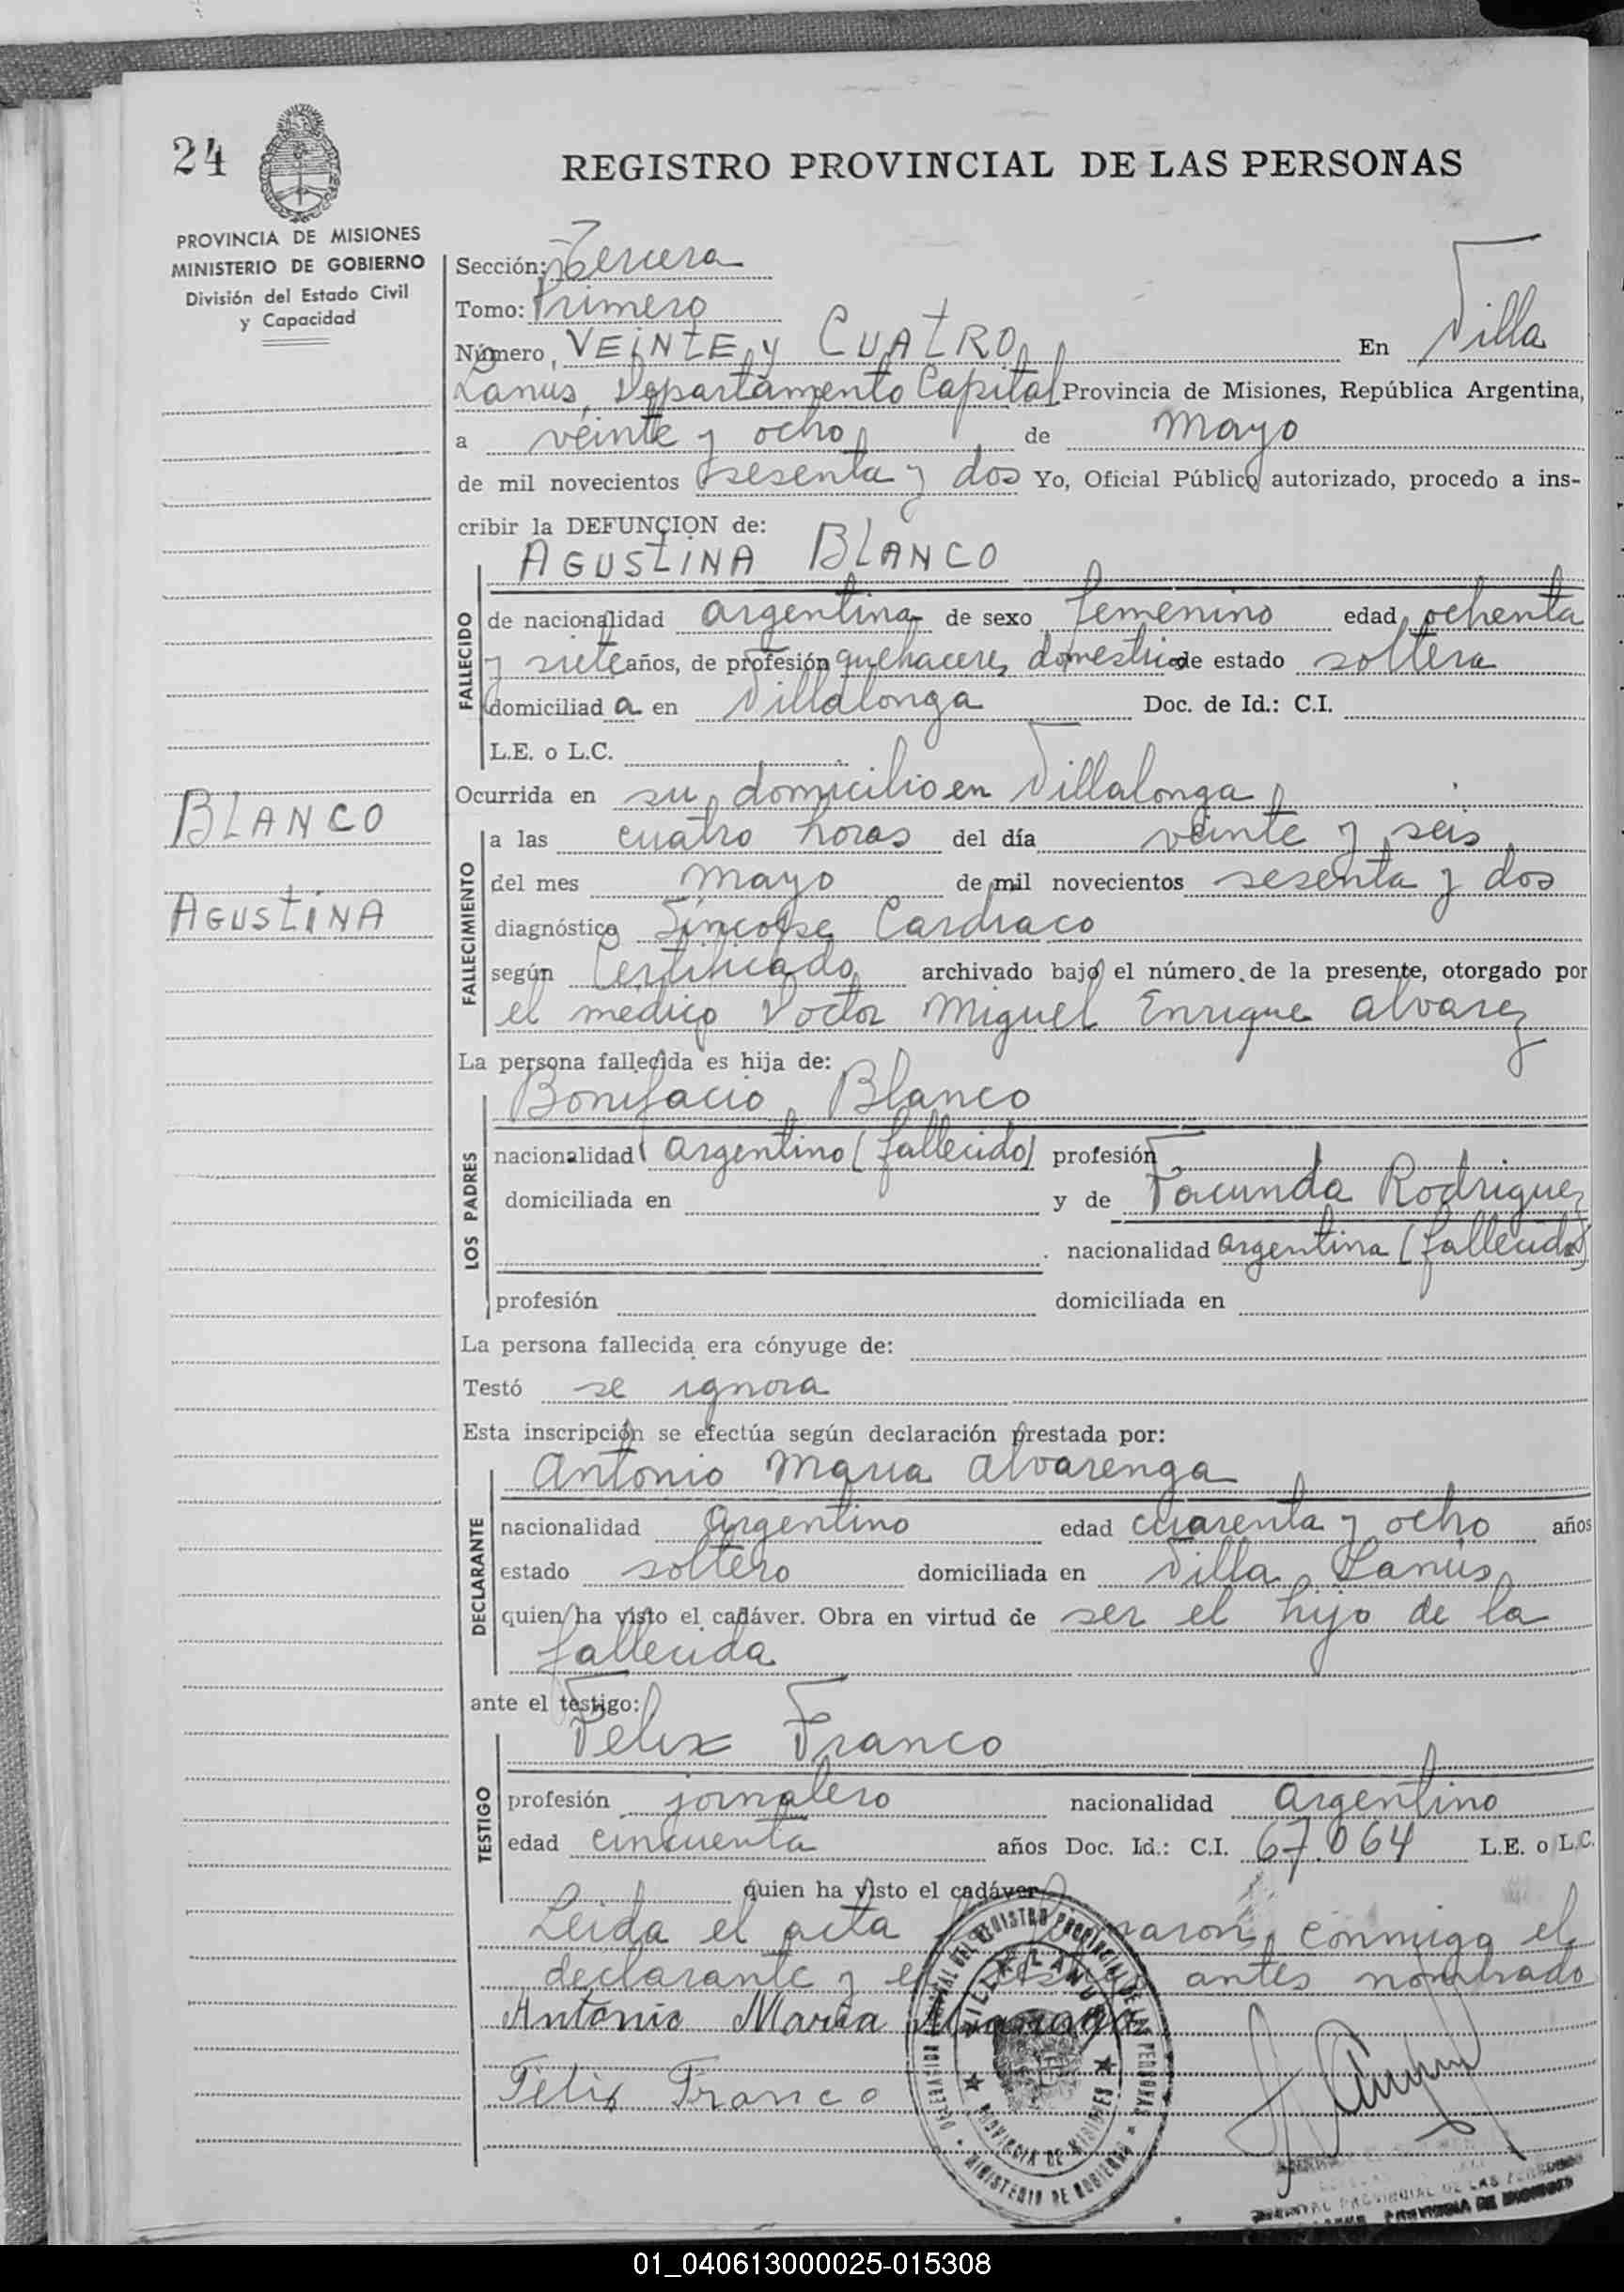 24
REGISTRO PROVINCIAL DE LAS PERSONAS
PROVINCIA DE MISIONES
MINISTERIO DE GOBIERNO
División del Estado Civil
y Capacidad
Sección: Tercera
Tomo: Primero
Número VEINTE y CUATRO En Villa
Lanus, Departamento Capital Provincia de Misiones, República Argentina,
a veinte y ocho de Mayo
de mil novecientos sesenta y dos Yo, Oficial Público autorizado, procedo a ins-
cribir la DEFUNCION de:
AGUSTINA BLANCO
FALLECIDO
de nacionalidad argentina de sexo femenino edad ochenta
y siete años, de profesión quehaceres domestico de estado soltera
domiciliad a en Villalonga Doc. de Id.: C.I.
L.E. o L.C.
BLANCO
AGUSTINA
Ocurrida en su domicilio en Villalonga
FALLECIMIENTO
a las cuatro horas del día veinte y seis
del mes Mayo de mil novecientos sesenta y dos
diagnóstico Síncope Cardiaco
según Certificado archivado bajo el número de la presente, otorgado por
el medico Doctor Miguel Enrique Alvarez
La persona fallecida es hija de:
LOS PADRES
Bonifacio Blanco
nacionalidad argentino (fallecido) profesión
domiciliada en y de Facunda Rodriguez
nacionalidad argentina (fallecida)
profesión domiciliada en
La persona fallecida era cónyuge de:
Testó se ignora
Esta inscripción se efectúa según declaración prestada por:
DECLARANTE
Antonio Maria Alvarenga
nacionalidad Argentino edad cuarenta y ocho años
estado soltero domiciliada en Villa Lanús
quien ha visto el cadáver. Obra en virtud de ser el hijo de la
fallecida
ante el testigo:
TESTIGO
Felix Franco
profesión jornalero nacionalidad argentino
edad cincuenta años Doc. Id.: C.I. 67.064 L.E. o L.C.
quien ha visto el cadáver
Leida el acta conmigo el
declarante y el testigo antes nombrado
Antonio Maria Alvarenga
Felix Franco
VILLA LANUS
PROVINCIA DE MISIONES
MINISTERIO DE GOBIERNO
01_040613000025-015308